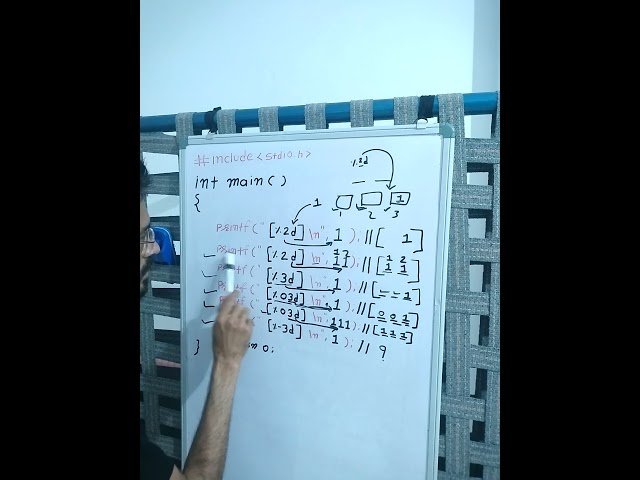 #include<stdio.h>
%3d
int main()
{
1
1
1 2 3
printf("[%2d]\n", 1); //[ 1]
12 1 2
printf(" [%2d] \n", 11); //[1 1]
printf(" [%3d] \n", 1); //[_ _ 1]
printf(" [%03d] \n", 1); //[0 0 1]
printf(" [%03d] \n", 111); //[1 1 1]
(" [%-3d] \n", 1); // ?
} 0;